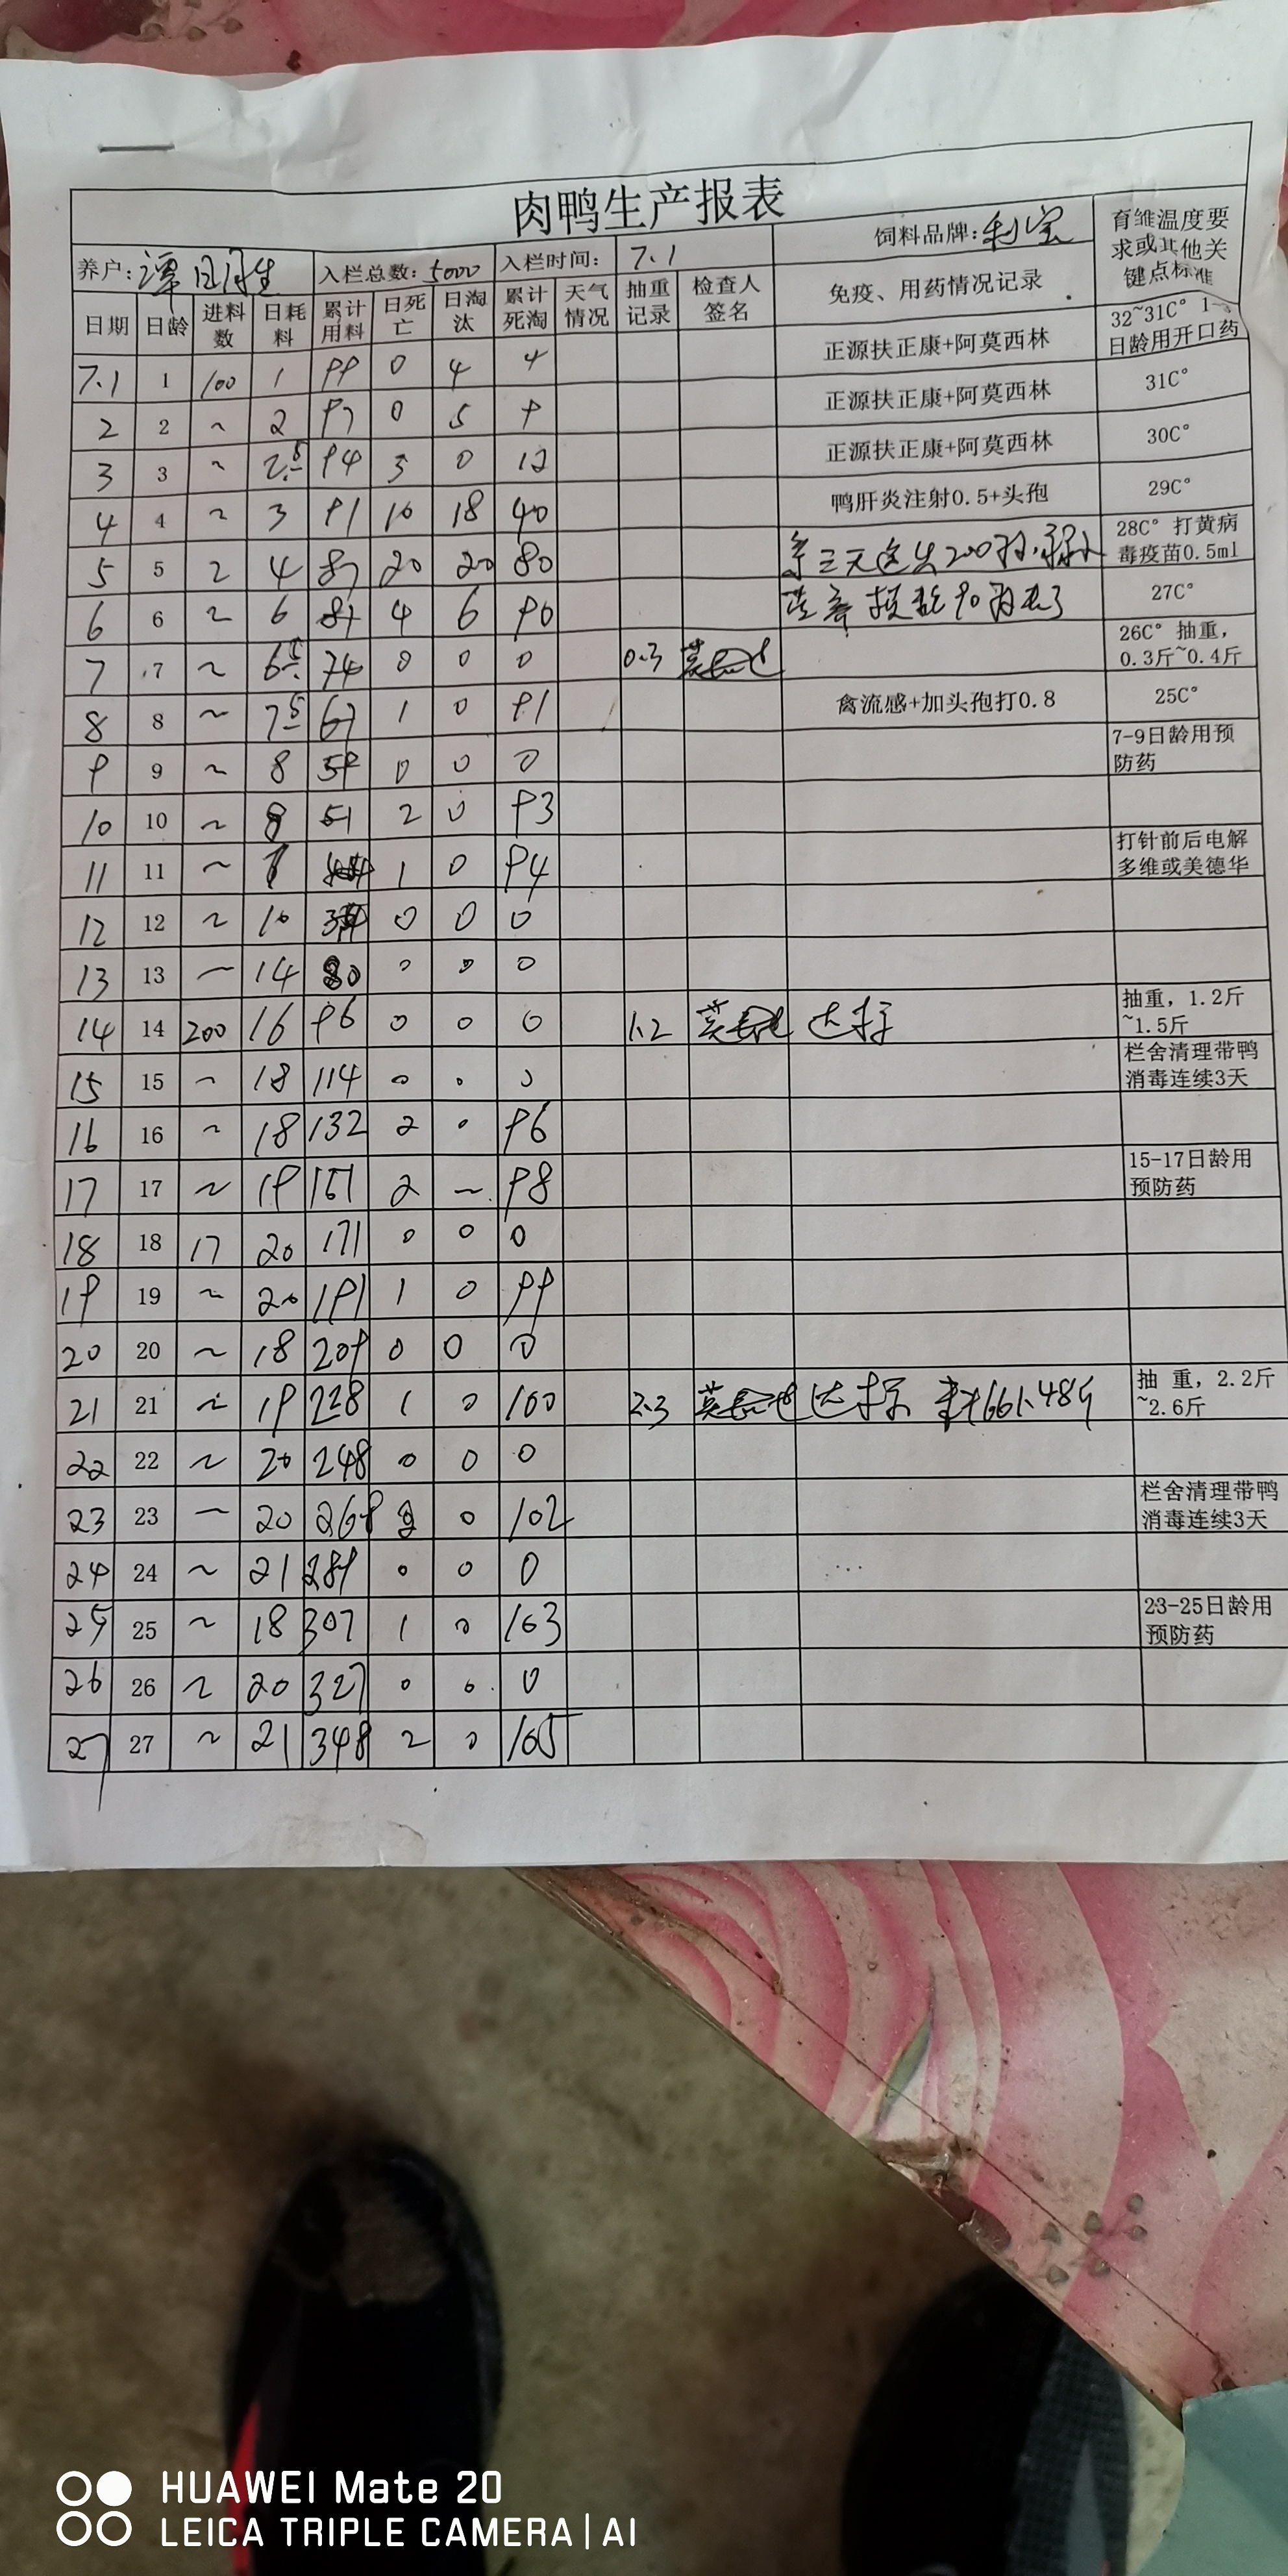 肉鸭生产报表
养户: 谭日月生 入栏总数: 5000 入栏时间: 7.1 饲料品牌: 利宝 育雏温度要求或其他关键点标准
日期 日龄 进料数 日耗料 累计用料 日死亡 日淘汰 累计死淘 天气情况 抽重记录 检查人签名 免疫、用药情况记录
7.1 1 100 1 99 0 4 4 正源扶正康+阿莫西林 32~31C° 日龄用开口药
2 2 ~ 2 97 0 5 9 正源扶正康+阿莫西林 31C°
3 3 ~ 2.5 94 3 0 12 正源扶正康+阿莫西林 30C°
4 4 ~ 3 91 10 18 40 鸭肝炎注射0.5+头孢 29C°
5 5 ~ 4 87 20 20 80 28C° 打黄病毒疫苗0.5ml
6 6 ~ 6 81 4 6 90 27C°
7 7 ~ 6.5 74 0 0 0 0.3 26C° 抽重,0.3斤~0.4斤
8 8 ~ 7.5 67 1 0 91 禽流感+加头孢打0.8 25C°
9 9 ~ 8 59 0 0 0 7-9日龄用预防药
10 10 ~ 8 51 2 0 93
11 11 ~ 1 0 94 打针前后电解多维或美德华
12 12 ~ 10 0 0 0
13 13 ~ 14 80 0 0 0
14 14 200 16 96 0 0 0 1.2 达标 抽重，1.2斤~1.5斤
15 15 ~ 18 114 0 0 0 栏舍清理带鸭消毒连续3天
16 16 ~ 18 132 2 0 96
17 17 ~ 19 151 2 ~ 98 15-17日龄用预防药
18 18 17 20 171 0 0 0
19 19 ~ 20 191 1 0 99
20 20 ~ 18 209 0 0 0
21 21 ~ 19 228 1 0 100 2.3 达标 料661.48斤 抽 重，2.2斤~2.6斤
22 22 ~ 20 248 0 0 0
23 23 ~ 20 268 2 0 102 栏舍清理带鸭消毒连续3天
24 24 ~ 21 289 0 0 0
25 25 ~ 18 307 1 0 103 23-25日龄用预防药
26 26 ~ 20 327 0 0 0
27 27 ~ 21 348 2 0 105
HUAWEI Mate 20
LEICA TRIPLE CAMERA | AI